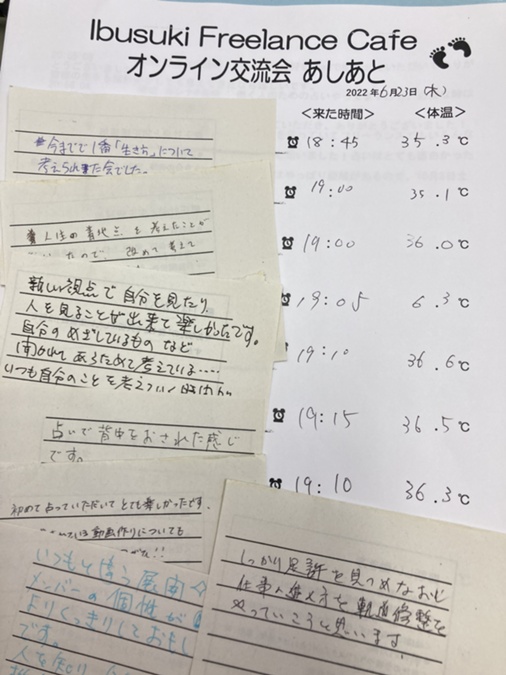 Ibusuki Freelance Cafe
オンライン交流会 あしあと
2022年6月23日(木)
<来た時間> <体温>
18:45 35.3℃
19:00 35.1℃
19:00 36.0℃
19:05 6.3℃
19:10 36.6℃
19:15 36.5℃
19:10 36.3℃
今までで1番「生き方」について
考えられた会でした。
人生の 点を考えたことが
ので、改めて考えて
新しい視点で自分を見たり
人を見ることが出来て楽しかったです。
自分のめざしているものなど
聞かれてあらためて考えている……
いつも自分のことを考えてい
占いで背中をおされた感じ
です。
初めて占っていただいてとても楽しかったです。
動画作りについても
いつもと違う展開
メンバーの個性が
よりくっきりして
です。
人を知り
しっかり足許を見つめなおし
仕事の進め方を軌道修整を
やっていこうと思います。